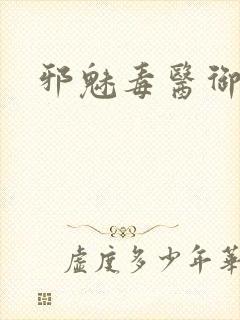 邪魅毒醫御
虛度多少年華